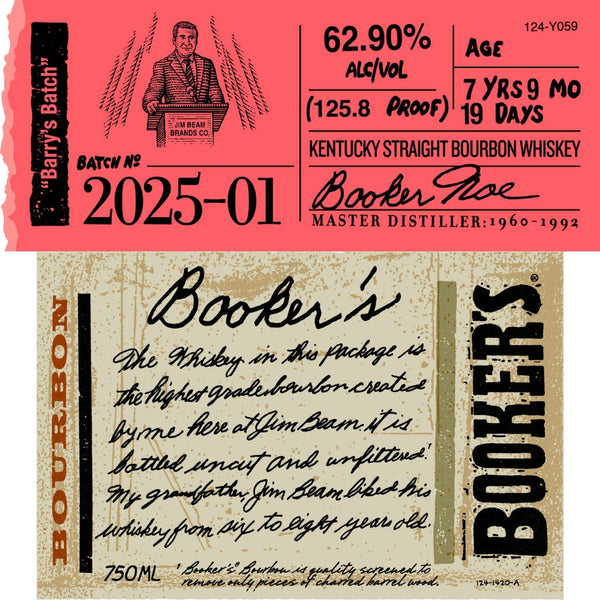 "Barry's Batch"
JIM BEAM
BRANDS CO.
BATCH Nº
2025-01
124-Y059
62.90%
ALC/VOL
(125.8 PROOF)
AGE
7 YRS 9 MO
19 DAYS
KENTUCKY STRAIGHT BOURBON WHISKEY
Booker Noe
MASTER DISTILLER: 1960-1992
BOURBON
Booker's
The Whiskey in this package is
the highest grade bourbon created
by me here at Jim Beam. it is
bottled uncut and unfiltered¹
My grandfather, Jim Beam liked his
whiskey from six to eight years old.
750ML
¹ Booker's® Bourbon is quality screened to
remove only pieces of charred barrel wood.
BOOKER'S®
124-1420-A